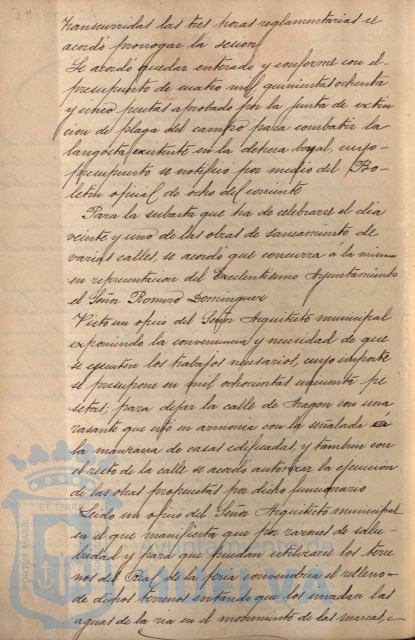 transcurridas las tres horas reglamentarias se
acordó prorrogar la sesion
Se acordó quedar enterado y conforme con el
presupuesto de cuatro mil, quinientas ochenta
y cinco pesetas aprobado por la junta de extin
cion de plaga del campo para combatir la
langosta existente en la dehesa boyal, cuyo
presupuesto se notificó por medio del Bo-
letin oficial de ocho del corriente
Para la subasta que ha de celebrarse el dia
veinte y uno de las obras de saneamiento de
varias calles, se acordó que concurra á la misma
en representacion del Excelentisimo Ayuntamiento
el Señor Romero Dominguez
Visto un oficio del Señor Arquitecto municipal
exponiendo la conveniencia y necesidad de que
se ejecuten los trabajos necesarios, cuyo importe
se presupone en mil ochocientas cincuenta pe
setas, para dejar la calle de Aragon con una
rasante que esté en armonia con la señalada á
la manzana de casas edificadas, y tambien con
el resto de la calle se acordó autorizar la ejecucion
de las obras propuestas por dicho funcionario
Leido un oficio del Señor Arquitecto municipal
en el que manifiesta que por razones de salu-
bridad y para que puedan utilizarse los terre
nos del Real de la feria convendria el relleno
de dichos terrenos evitando que los invadan las
aguas de la ria en el movimiento de las mareas,
PORTUS MARIS
ET TERRE